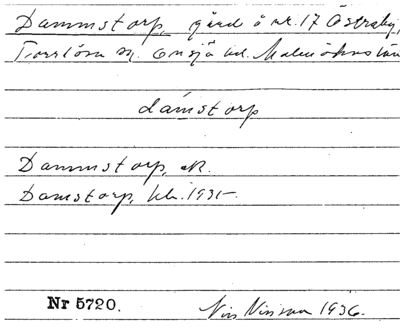 Dammstorp, gård å nr. 17 Östraby,
Torrlösa sn. Onsjö hd. Malmöhus län
dámstorp
Dammstorp, ek.
Damstorp, kb. 1931-
Nr 5720.
Nils Nilsson 1936.